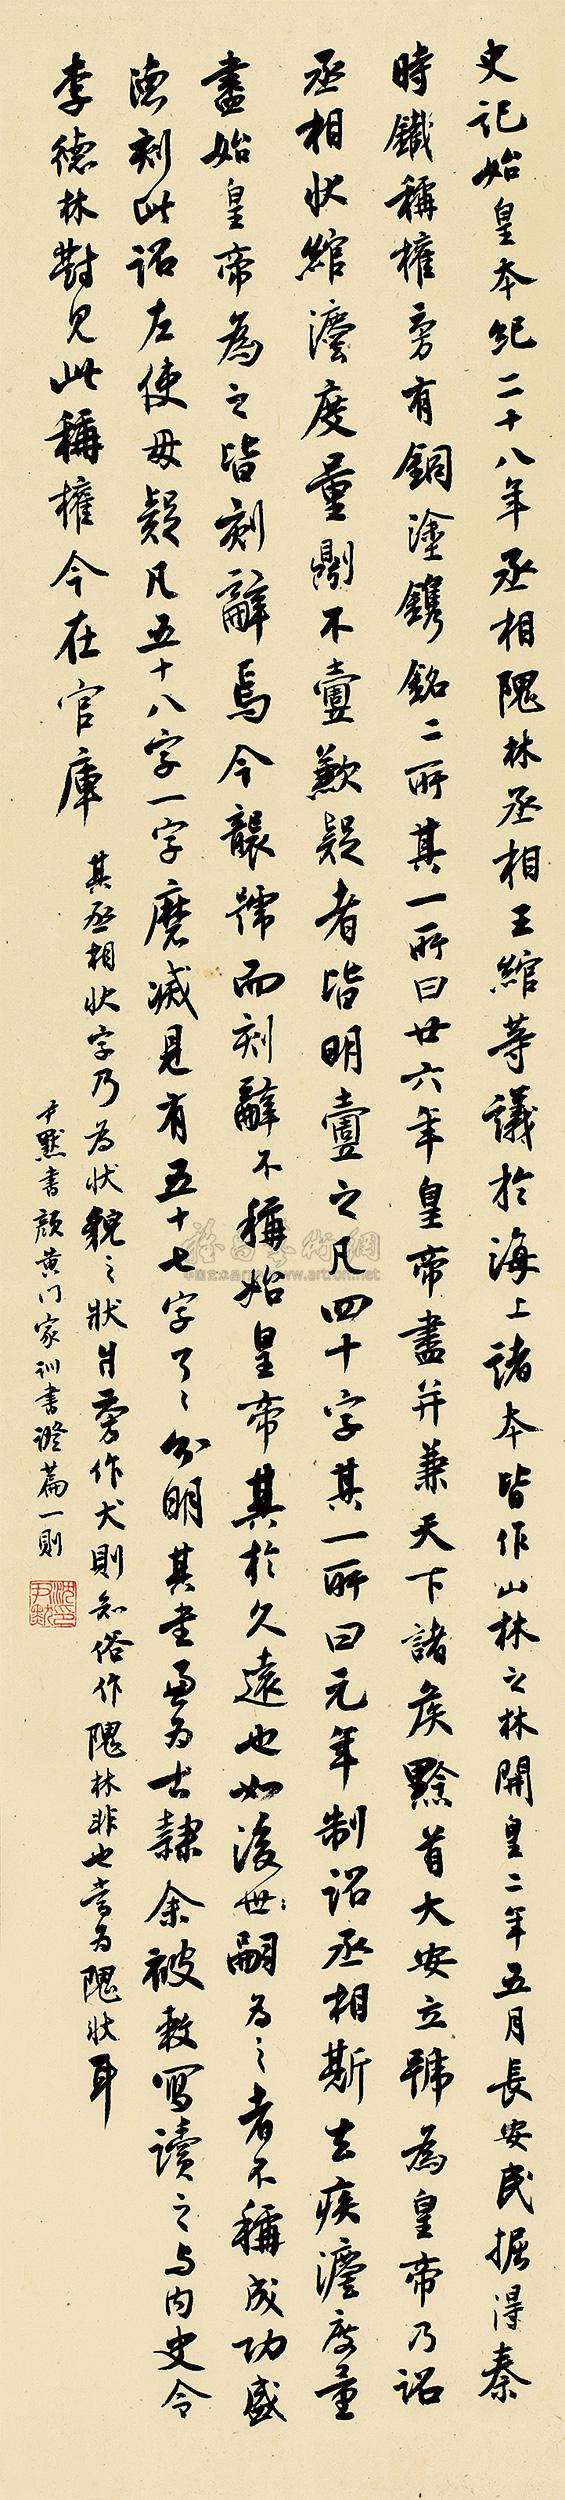 史記始皇本紀二十八年丞相隗林丞相王綰等議於海上諸本皆作山林之林開皇二年五月長安民掘得秦
時鐵稱權旁有銅塗鐫銘二所其一所曰廿六年皇帝盡并兼天下諸侯黔首大安立號為皇帝乃詔
丞相狀綰灋度量𠟭不壹歉疑者皆明壹之凡四十字其一所曰元年制詔丞相斯去疾灋度量
盡始皇帝為之皆刻辭焉今襲號而刻辭不稱始皇帝其於久遠也如後世嗣為之者不稱成功盛
德刻此詔左使毋疑凡五十八字一字磨滅見有五十七字了々分明其書兼為古隸余被敕寫讀之與內史令
李德林對見此稱權今在官庫
其丞相狀字乃為狀貌之狀爿旁作犬則知俗作隗林非也當為隗狀耳
尹默書顏黃門家訓書證篇一則
沈印尹默
雅昌藝術網
www.artron.net